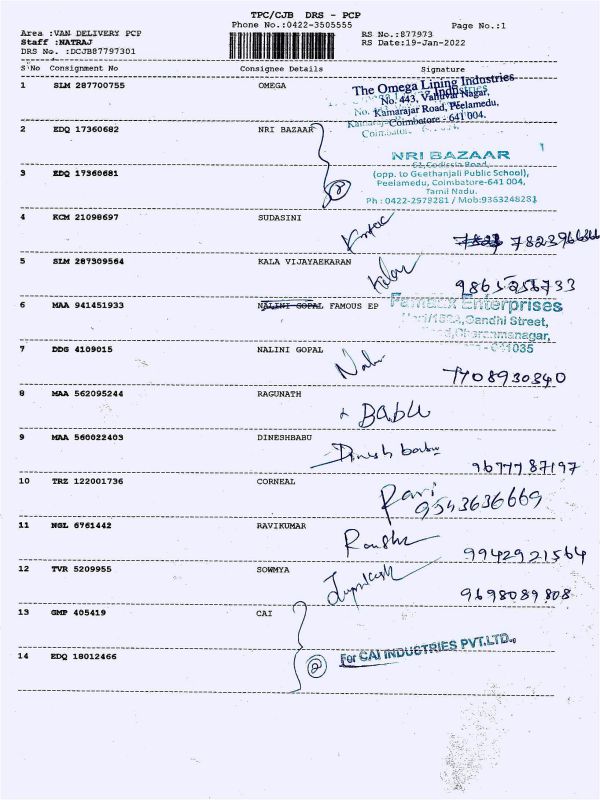 TPC/CJB DRS - PCP
Phone No.:0422-3505555
Page No.:1
Area :VAN DELIVERY PCP
Staff :NATRAJ
DRS No. :DCJB87797301
RS No.:877973
RS Date:19-Jan-2022
S'No Consignment No Consignee Details Signature
1 SLM 287700755 OMEGA
The Omega Lining Industries
No. 443, Valluvar Nagar,
Kamarajar Road, Peelamedu,
Coimbatore - 641 004.
2 EDQ 17360682 NRI BAZAAR
NRI BAZAAR
61, Codissia Road,
(opp. to Geethanjali Public School),
3 EDQ 17360681
Peelamedu, Coimbatore-641 004,
Tamil Nadu.
Ph : 0422-2578281 / Mob:936324828
2
4 KCM 21098697 SUDASINI
7823966366
5 SLM 287309564 KALA VIJAYAEKARAN
Kalar
9865256733
6 MAA 941451933 NALINI GOPAL FAMOUS EP
Enterprises
Gandhi Street,
7 DDG 4109015 NALINI GOPAL
035
7708930340
8 MAA 562095244 RAGUNATH
Babu
9 MAA 560022403 DINESHBABU
Dinesh babu
9677787197
10 TRZ 122001736 CORNEAL
Ravi
9543636669
11 NGL 6761442 RAVIKUMAR
9942921564
12 TVR 5209955 SOWMYA
9698089808
13 GMP 405419 CAI
2
For CAI INDUSTRIES PVT.LTD.,
14 EDQ 18012466